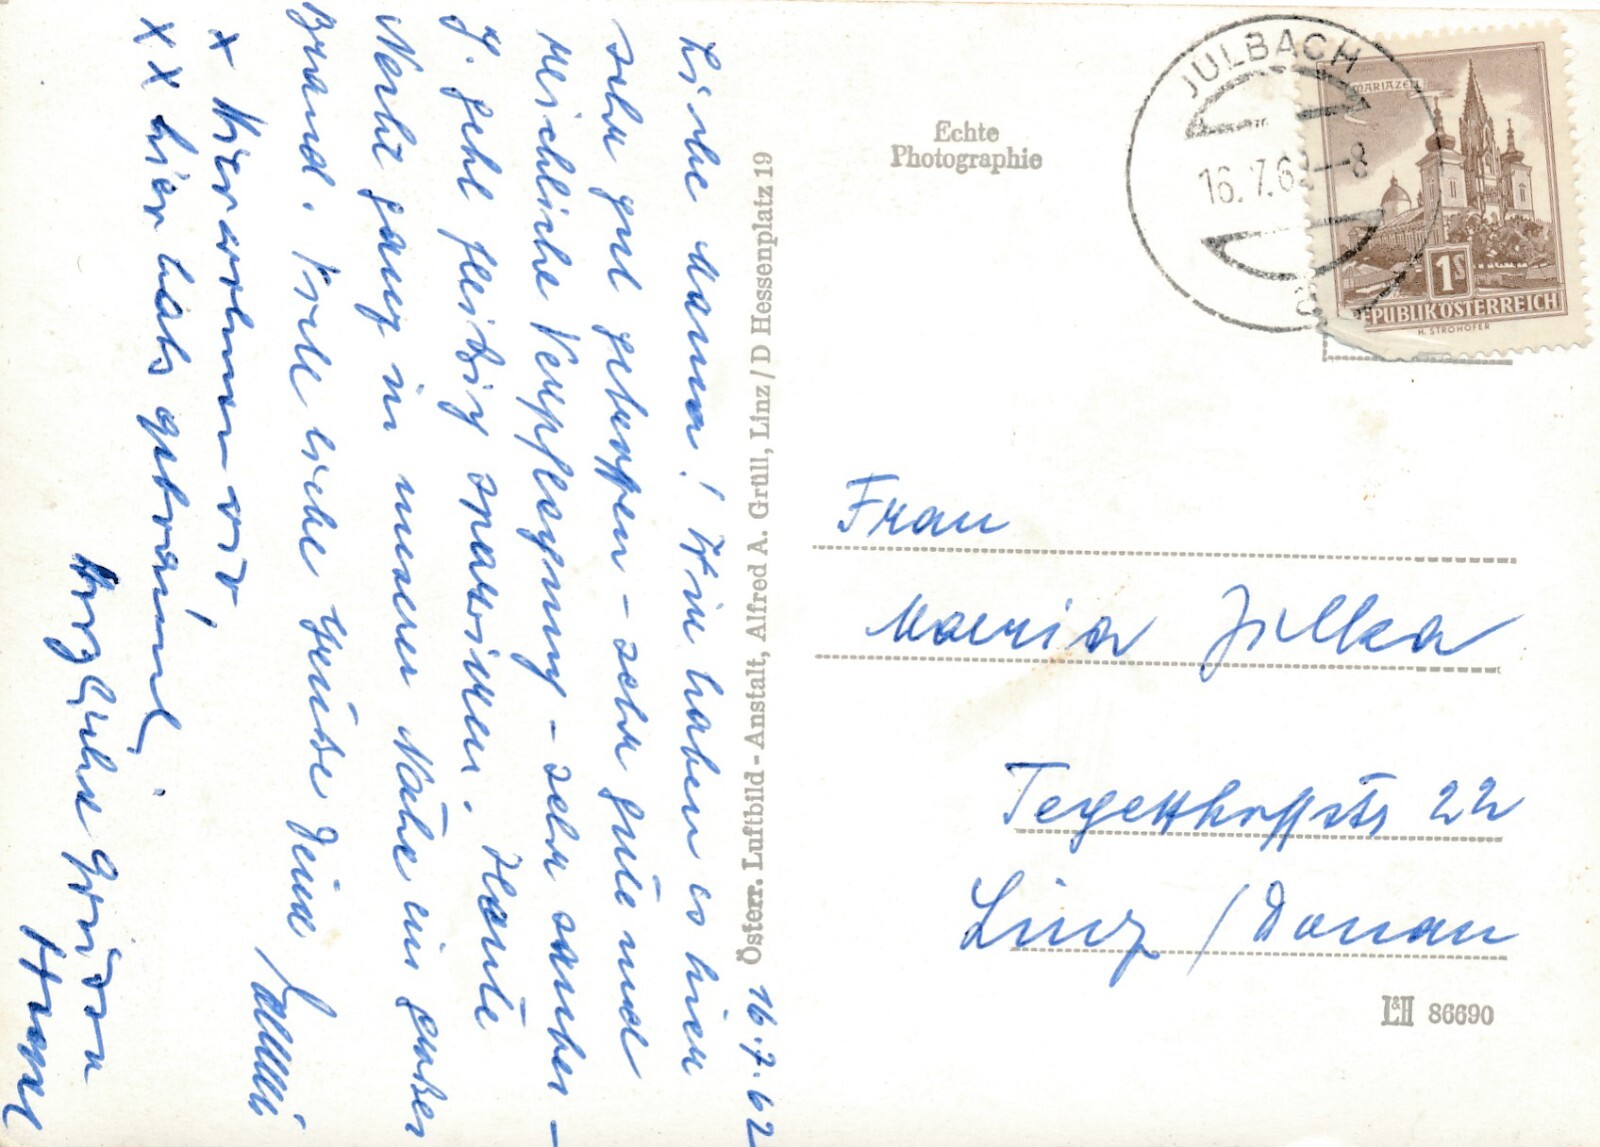 16.7.62
Liebe Mama! Wir haben es hier
sehr gut getroffen - sehr gute und
reichliche Verpflegung - sehr sauber -
J. geht fleißig spazieren. Heute
Nacht ganz in unserer Nähe ein großer
Brand. Viele liebe Grüße Deine
x
x x hier hats gebrannt.
Herzliche Grüße
Österr. Luftbild-Anstalt, Alfred A. Grüll, Linz/D Hessenplatz 19
Echte
Photographie
JULBACH
16.7.62-8
MARIAZELL
1S
REPUBLIK ÖSTERREICH
H. STROHOFER
Frau
Maria Jilka
Tegetthoffstr 22
Linz / Donau
L&H 86690